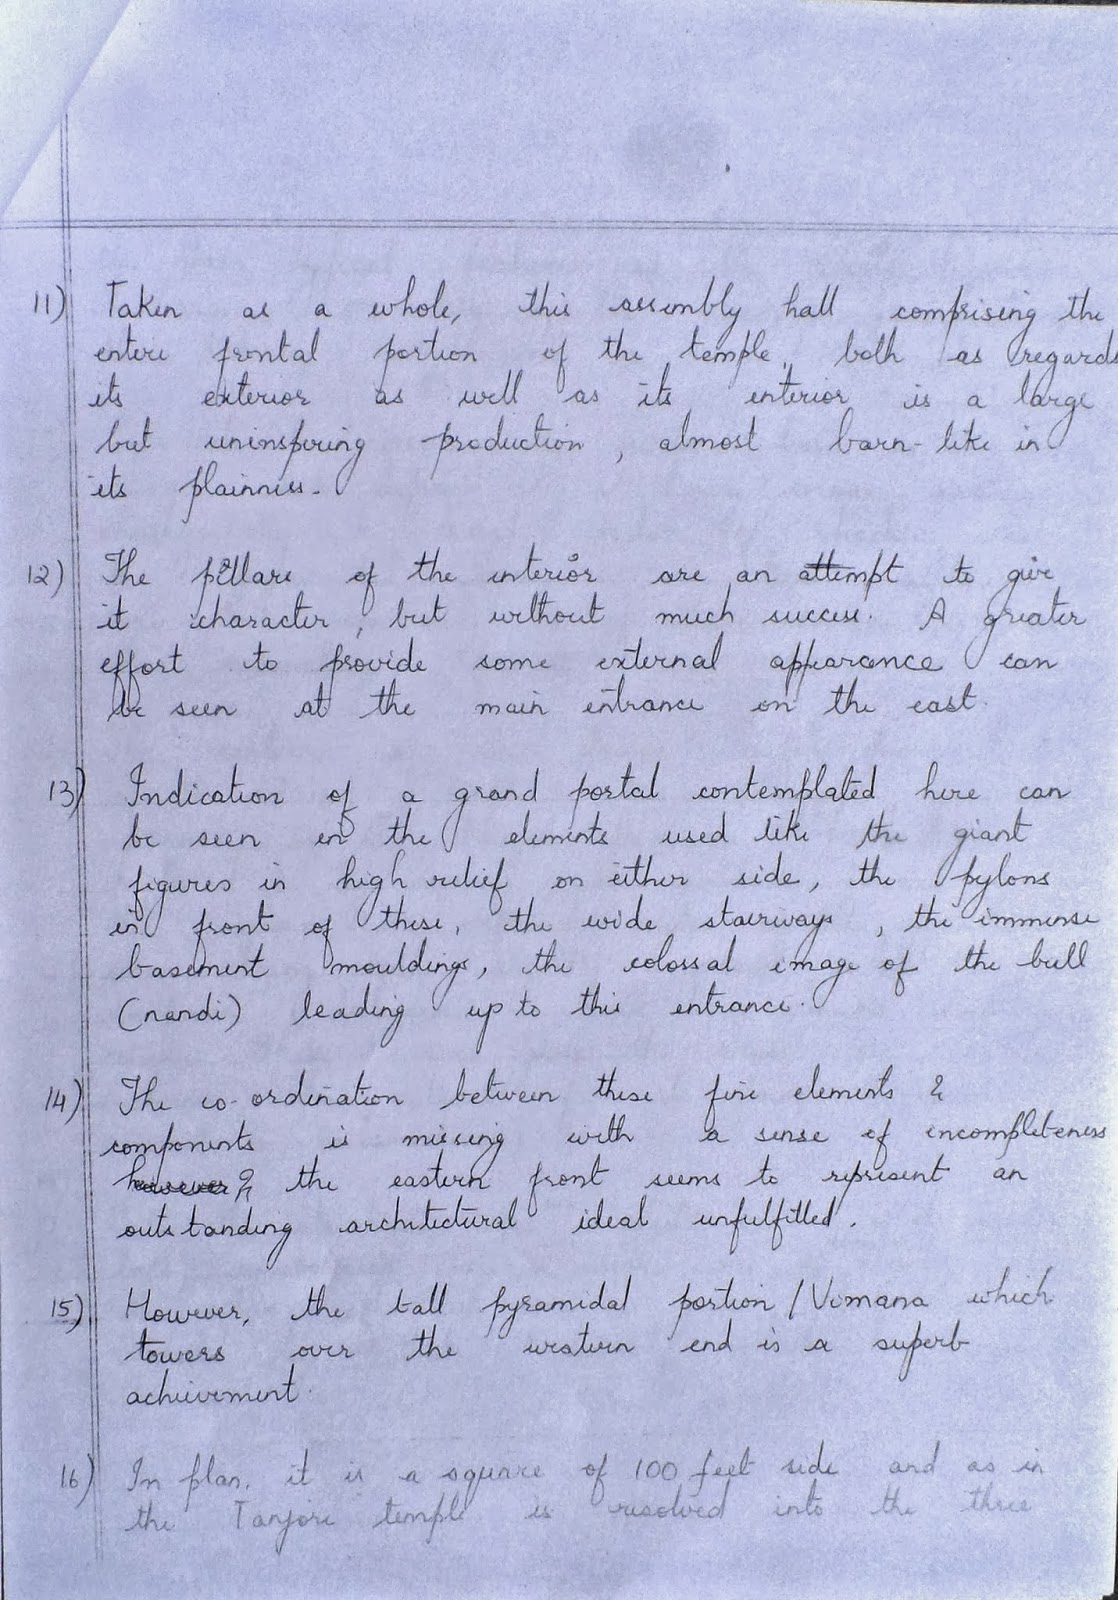 11) Taken as a whole, this assembly hall comprising the
entire frontal portion of the temple, both as regards
its exterior as well as its interior is a large
but uninspiring production, almost barn-like in
its plainness.
12) The pillars of the interior are an attempt to give
it character, but without much success. A greater
effort to provide some external appearance can
be seen at the main entrance on the east.
13) Indication of a grand portal contemplated here can
be seen in the elements used like the giant
figures in high relief on either side, the pylons
in front of these, the wide stairways, the immense
basement mouldings, the colossal image of the bull
(nandi) leading up to this entrance.
14) The co-ordination between these fine elements &
components is missing with a sense of incompleteness
however & the eastern front seems to represent an
outstanding architectural ideal unfulfilled.
15) However, the tall pyramidal portion / Vimana which
towers over the western end is a superb
achievement.
16) In plan, it is a square of 100 feet side and as in
the Tanjore temple is resolved into the three